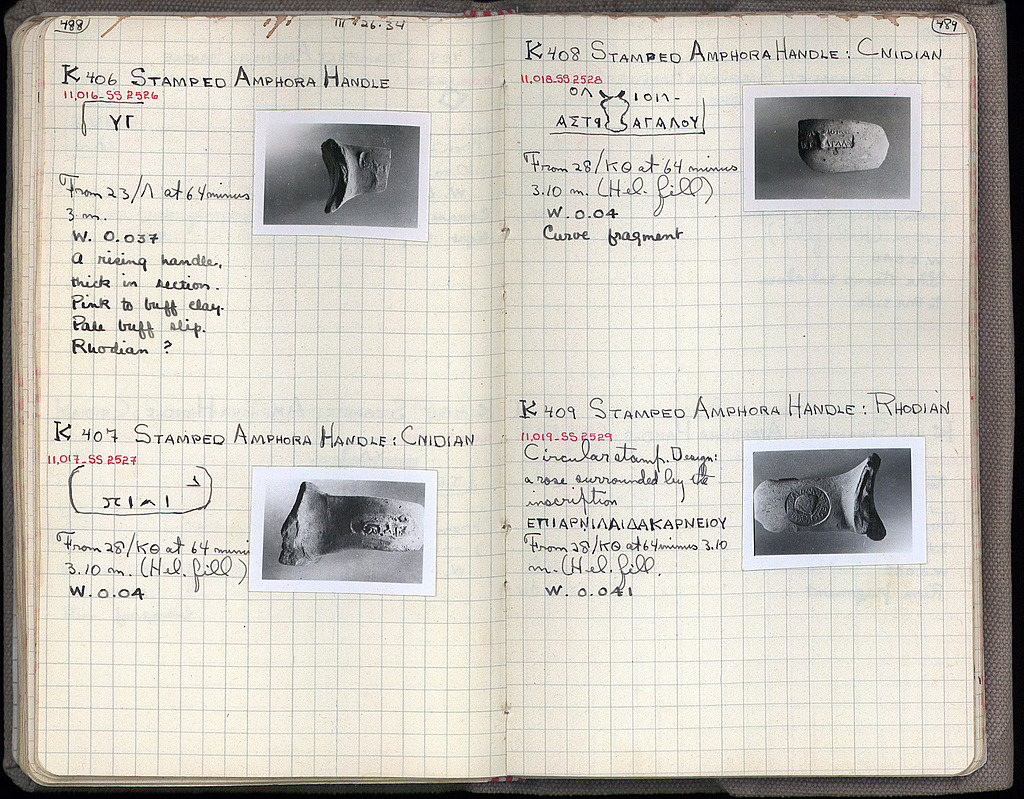 488
III · 26·34
K 406 STAMPED AMPHORA HANDLE
11,016-SS 2526
ΥΓ
From 23/Λ at 64 minus
3 m.
W. 0.037
A rising handle,
thick in section.
Pink to buff clay.
Pale buff slip.
Rhodian ?
K 407 STAMPED AMPHORA HANDLE: CNIDIAN
11,017-SS 2527
From 28/ΚΘ at 64 minus
3.10 m. (Hel. fill)
W. 0.04
489
K 408 STAMPED AMPHORA HANDLE: CNIDIAN
11,018-SS 2528
ΑΓΑΛΟΥ
From 28/ΚΘ at 64 minus
3.10 m. (Hel. fill)
W. 0.04
Curve fragment
K 409 STAMPED AMPHORA HANDLE: RHODIAN
11,019-SS 2529
Circular stamp. Design:
a rose surrounded by the
inscription
ΕΠΙΑΡΝΙΛΑΙΔΑΚΑΡΝΕΙΟΥ
From 28/ΚΘ at 64 minus 3.10
m. (Hel. fill.
W. 0.041